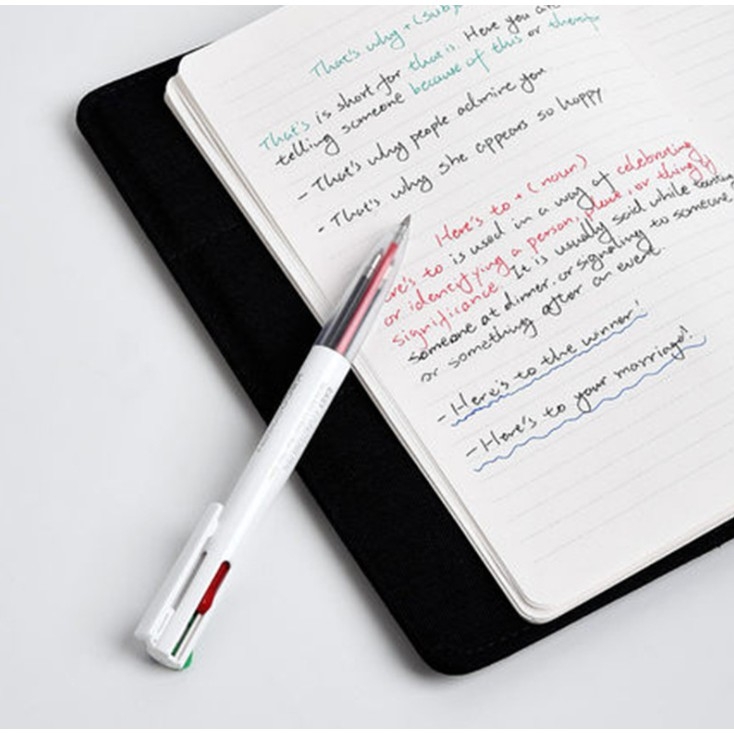 That's why + (subj
That's is short for that is. Here you are
telling someone because of this or therefo
- That's why people admire you
- That's why she appears so happy
Here's to + (noun)
ere's to is used in a way of celebrating
or identifying a person, place, or thing's
significance. It is usually said while toasting
someone at dinner, or signaling to someone
or something after an event.
- Here's to the winner!
- Here's to your marriage!